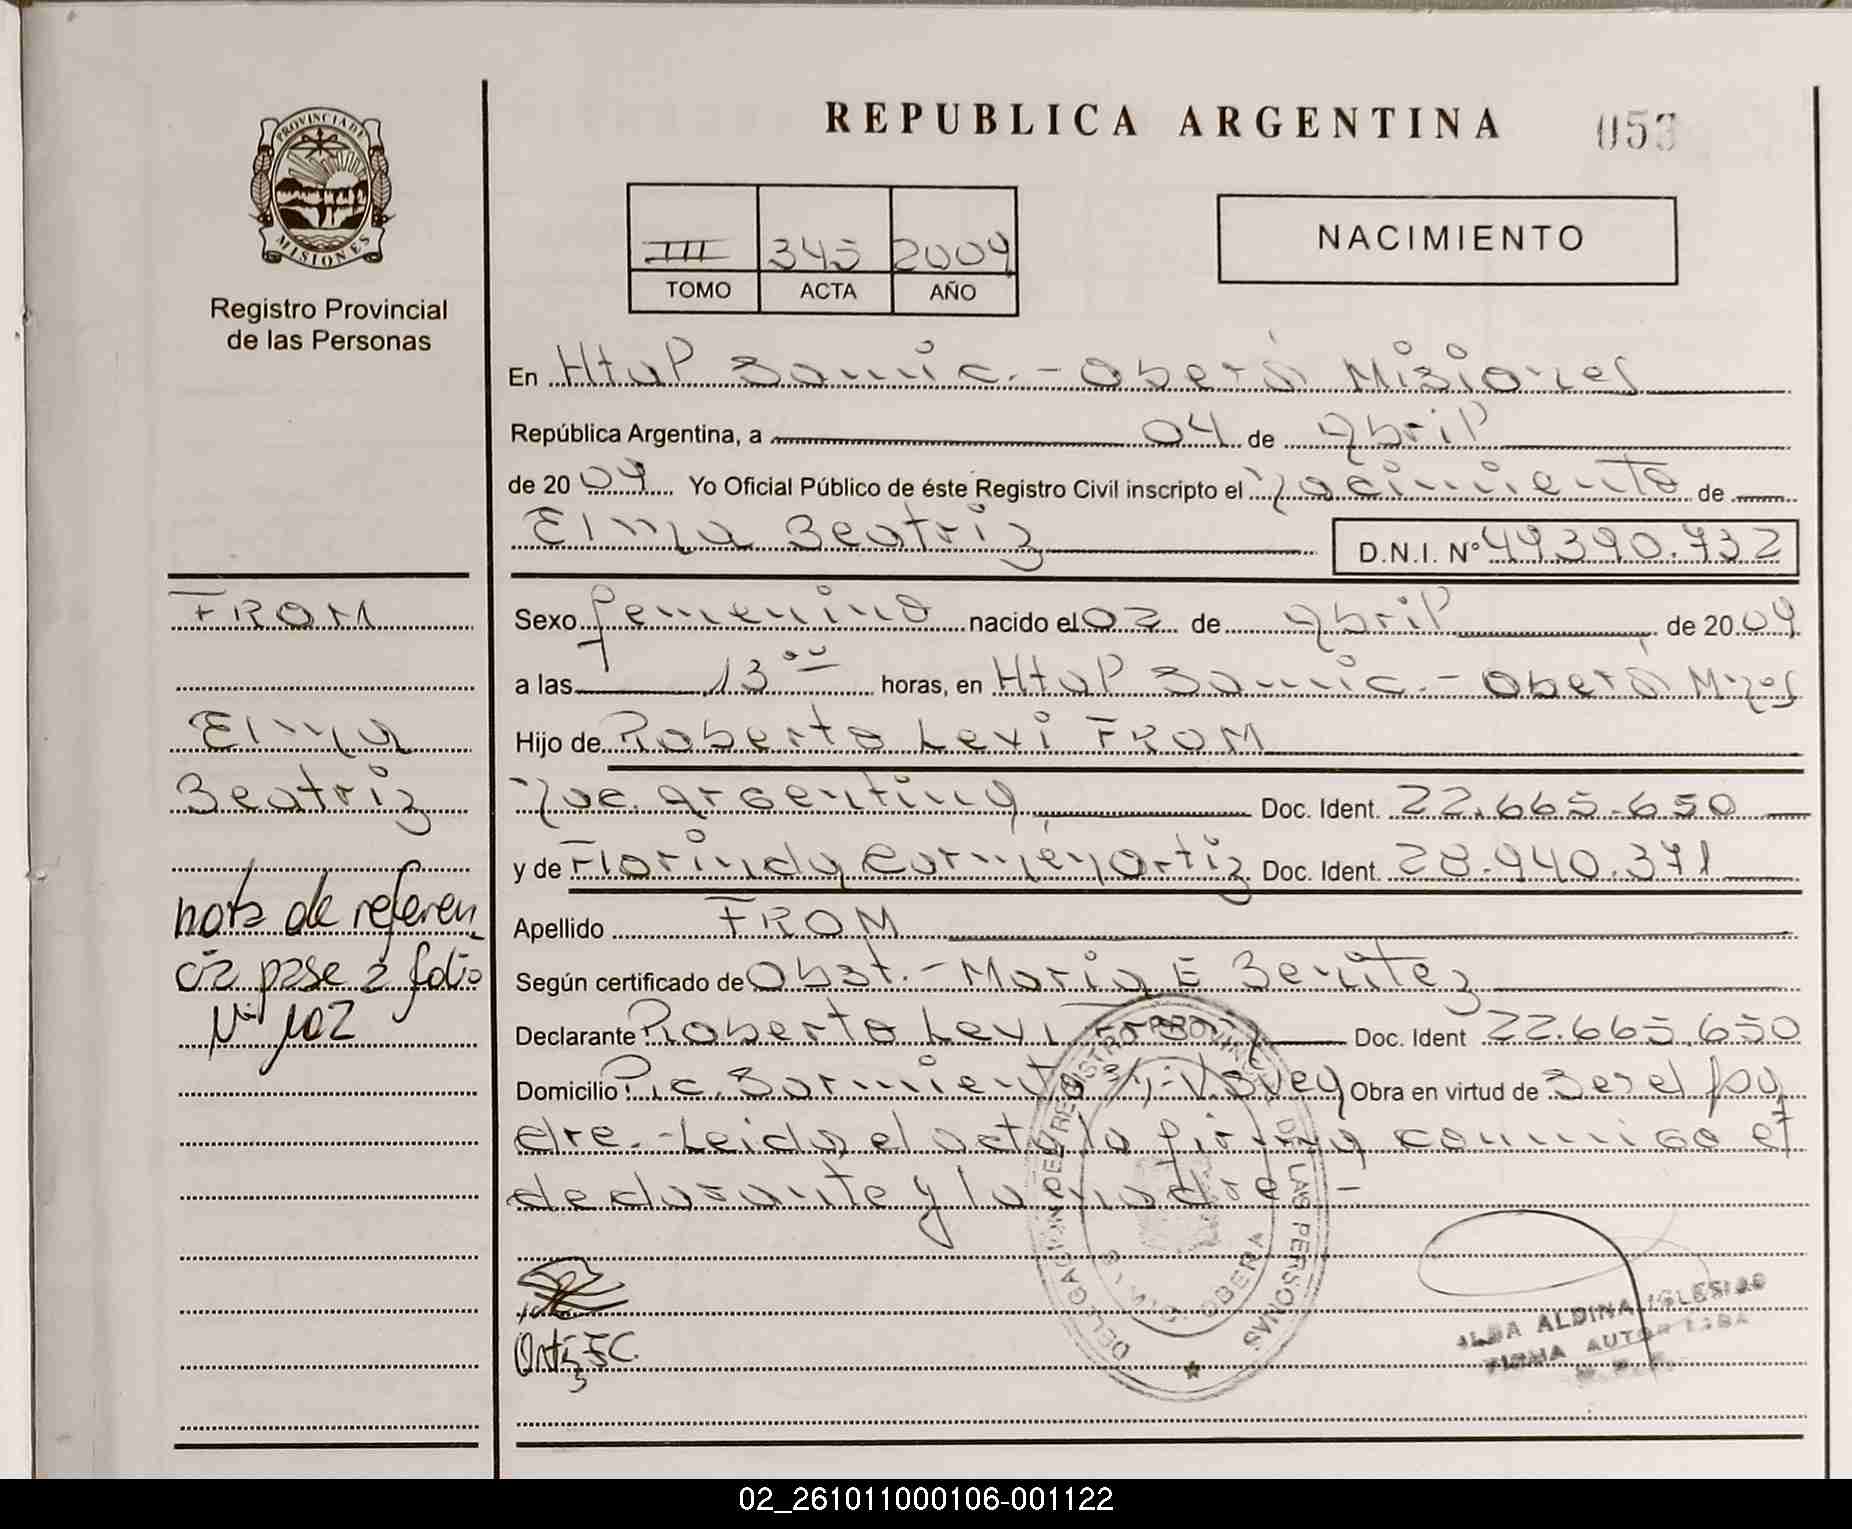 REPUBLICA ARGENTINA 053
PROVINCIA DE
MISIONES
Registro Provincial
de las Personas
III 345 2009
TOMO ACTA AÑO
NACIMIENTO
En Htal Samic.- Oberá Misiones
República Argentina, a 04 de Abril
de 2009 Yo Oficial Público de éste Registro Civil inscripto el Nacimiento de
Elma Beatriz D.N.I. Nº 49.390.732
FROM
Elma
Beatriz
nota de referen
cia pase a folio
Nº 102
Sexo femenino nacido el 02 de Abril de 2009
a las 13 ºº horas, en Htal Samic.- Oberá Mnes
Hijo de Roberto Levi FROM
Nac. argentina Doc. Ident. 22.665.650
y de Florinda Carmen Ortiz Doc. Ident. 28.940.371
Apellido FROM
Según certificado de Obst.- Maria E Benitez
Declarante Roberto Levi From Doc. Ident 22.665.650
Domicilio Pic. Sarmiento Obra en virtud de Ser el pa
dre.- Leida el acta la firma conmigo el
declarante y la madre.-
Ortiz F C.
DELEGACION DEL REGISTRO PROVINCIAL DE LAS PERSONAS
OBERA
ALBA ALDINA IGLESIAS
FIRMA AUTORIZADA
02_261011000106-001122